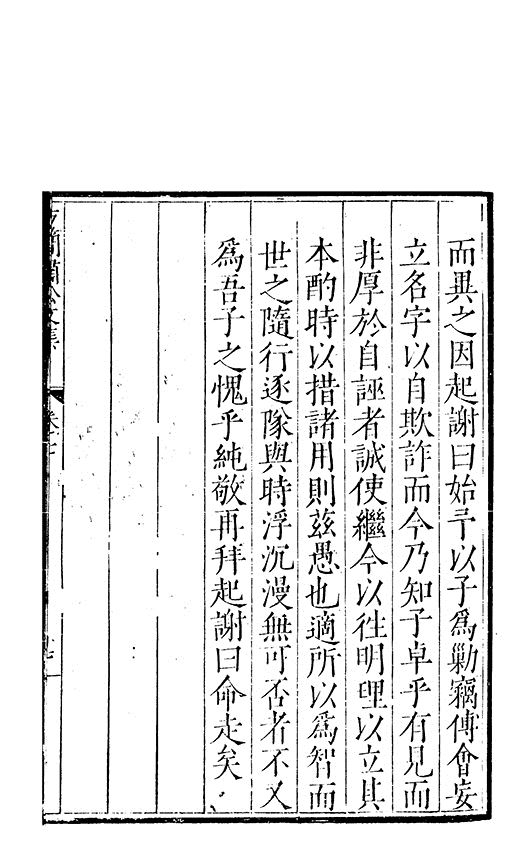 而異之因起謝曰始予以子爲勦竊傅會妄
立名字以自欺詐而今乃知子卓乎有見而
非厚於自誣者誠使繼今以往明理以立其
本酌時以措諸用則茲愚也適所以爲智而
世之隨行逐隊與時浮沉漫無可否者不又
爲吾子之愧乎純敬再拜起謝曰命走矣
文集
卷十